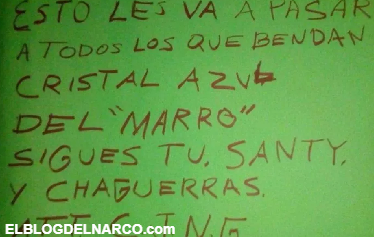 ESTO LES VA A PASAR
A TODOS LOS QUE BENDAN
CRISTAL AZUL
DEL "MARRO"
SIGUES TU. SANTY.
Y CHAGUERRAS.
ATT C.J.N.G
ELBLOGDELNARCO.COM